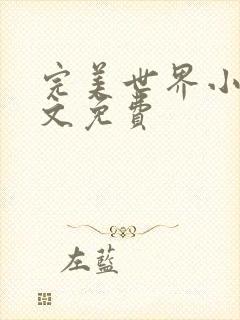 完美世界小
文免費
左藍